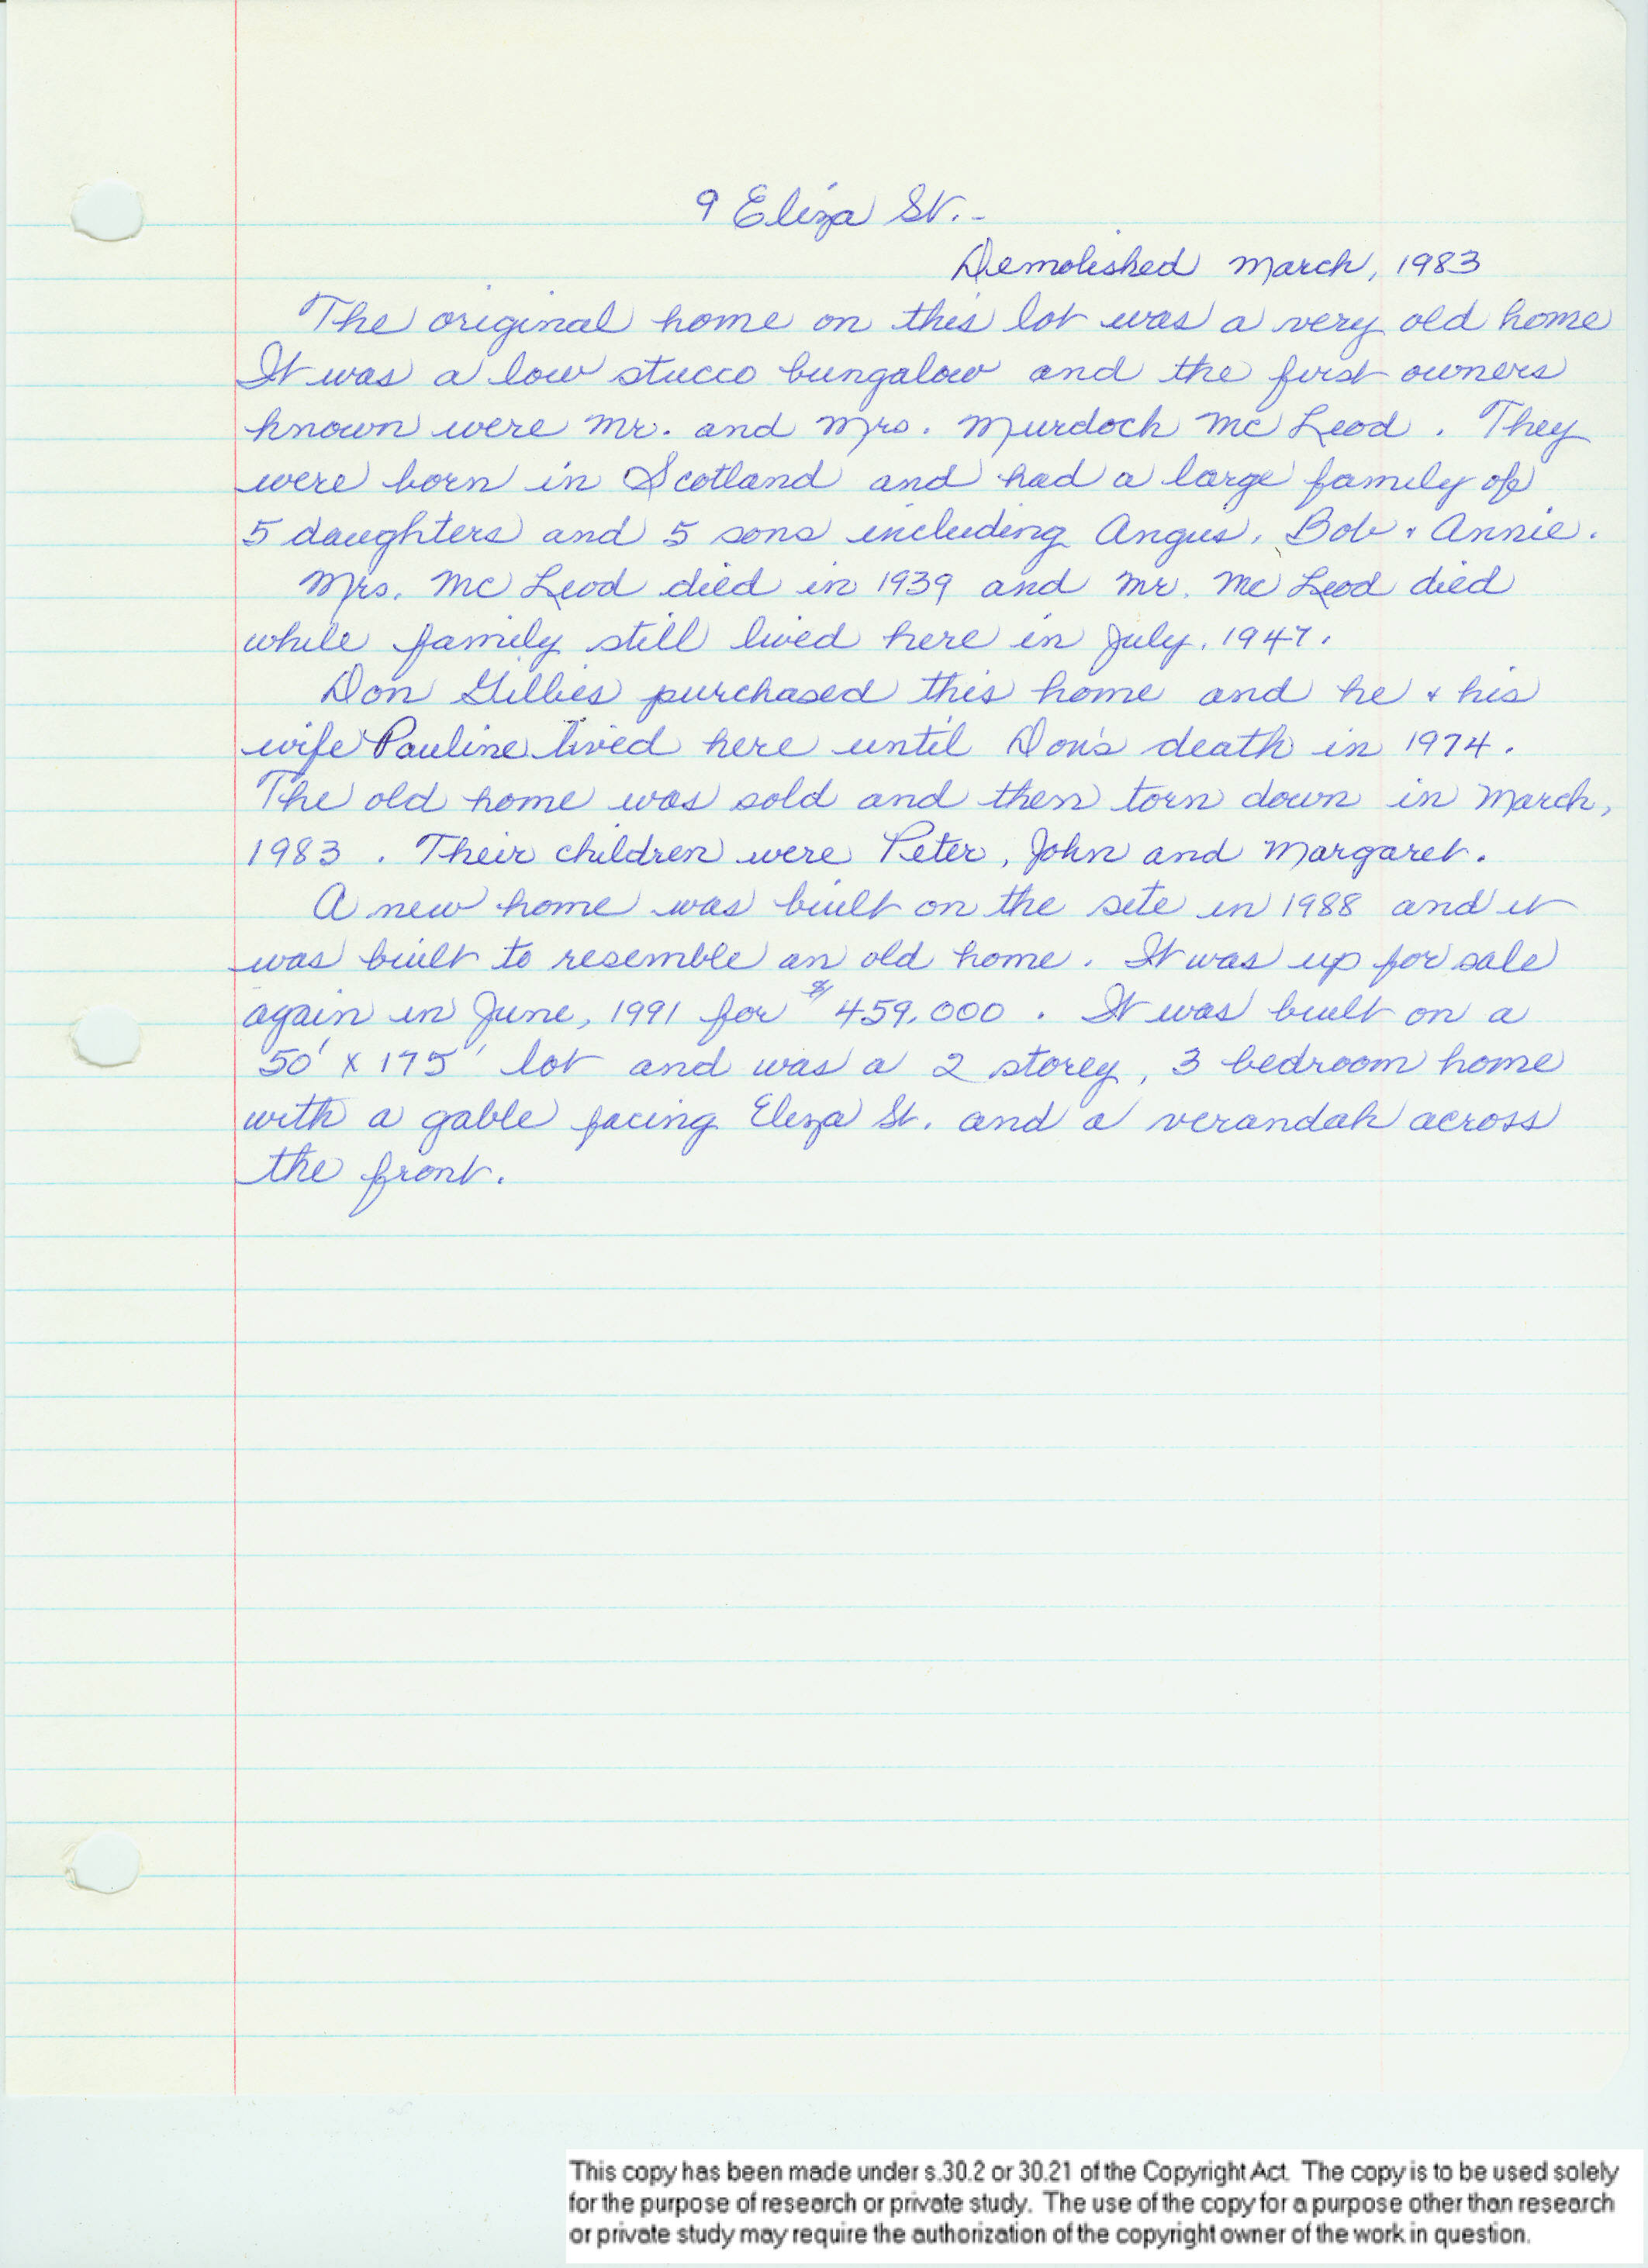 9 Eliza St. -
Demolished March, 1983
The original home on this lot was a very old home
It was a low stucco bungalow and the first owners
known were Mr. and Mrs. Murdoch Mc Leod. They
were born in Scotland and had a large family of
5 daughters and 5 sons including Angus, Bob & Annie.
Mrs. Mc Leod died in 1939 and Mr. Mc Leod died
while family still lived here in July, 1947.
Don Gillies purchased this home and he & his
wife Pauline lived here until Don's death in 1974.
The old home was sold and then torn down in March,
1983. Their children were Peter, John and Margaret.
A new home was built on the site in 1988 and it
was built to resemble an old home. It was up for sale
again in June, 1991 for $459,000. It was built on a
50' x 175' lot and was a 2 storey, 3 bedroom home
with a gable facing Eliza St. and a verandah across
the front.
This copy has been made under s.30.2 or 30.21 of the Copyright Act. The copy is to be used solely
for the purpose of research or private study. The use of the copy for a purpose other than research
or private study may require the authorization of the copyright owner of the work in question.